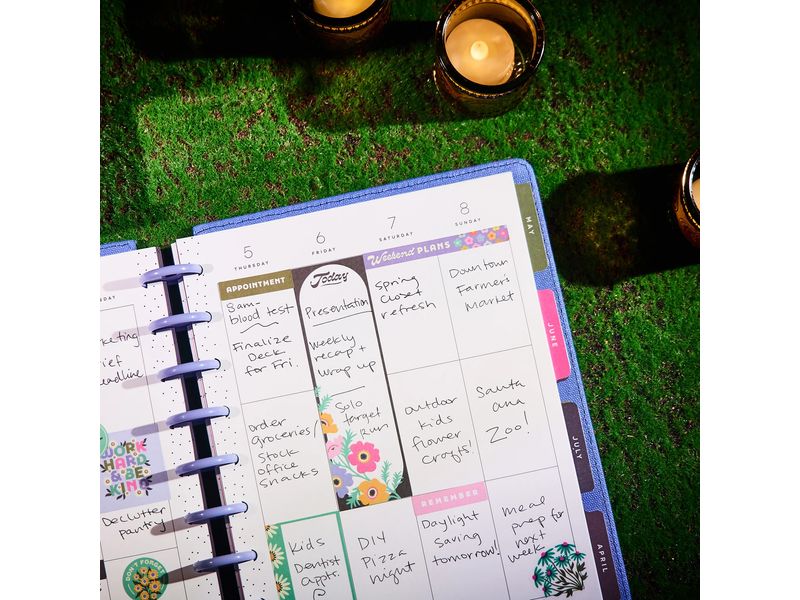 DAY
keting
ief
eadline
WORK
HARD
& BE
KIND
Declutter
pantry
DON'T FORGET
5
THURSDAY
APPOINTMENT
8am-
blood test
Finalize
Deck
for Fri.
order
groceries/
stock
office
snacks
Kids
Dentist
apptr.
6
FRIDAY
Today
Presentation
Weekly
recap +
wrap up
Solo
target
Run
DIY
Pizza
night
7
SATURDAY
Weekend PLANS
Spring
Closet
refresh
outdoor
kids
flower
crafts!
REMEMBER
Daylight
Saving
tomorrow!
8
SUNDAY
Downtown
Farmer's
Market
Santa
ana
Zoo!
meal
prep for
next
week
MAY
JUNE
JULY
APRIL